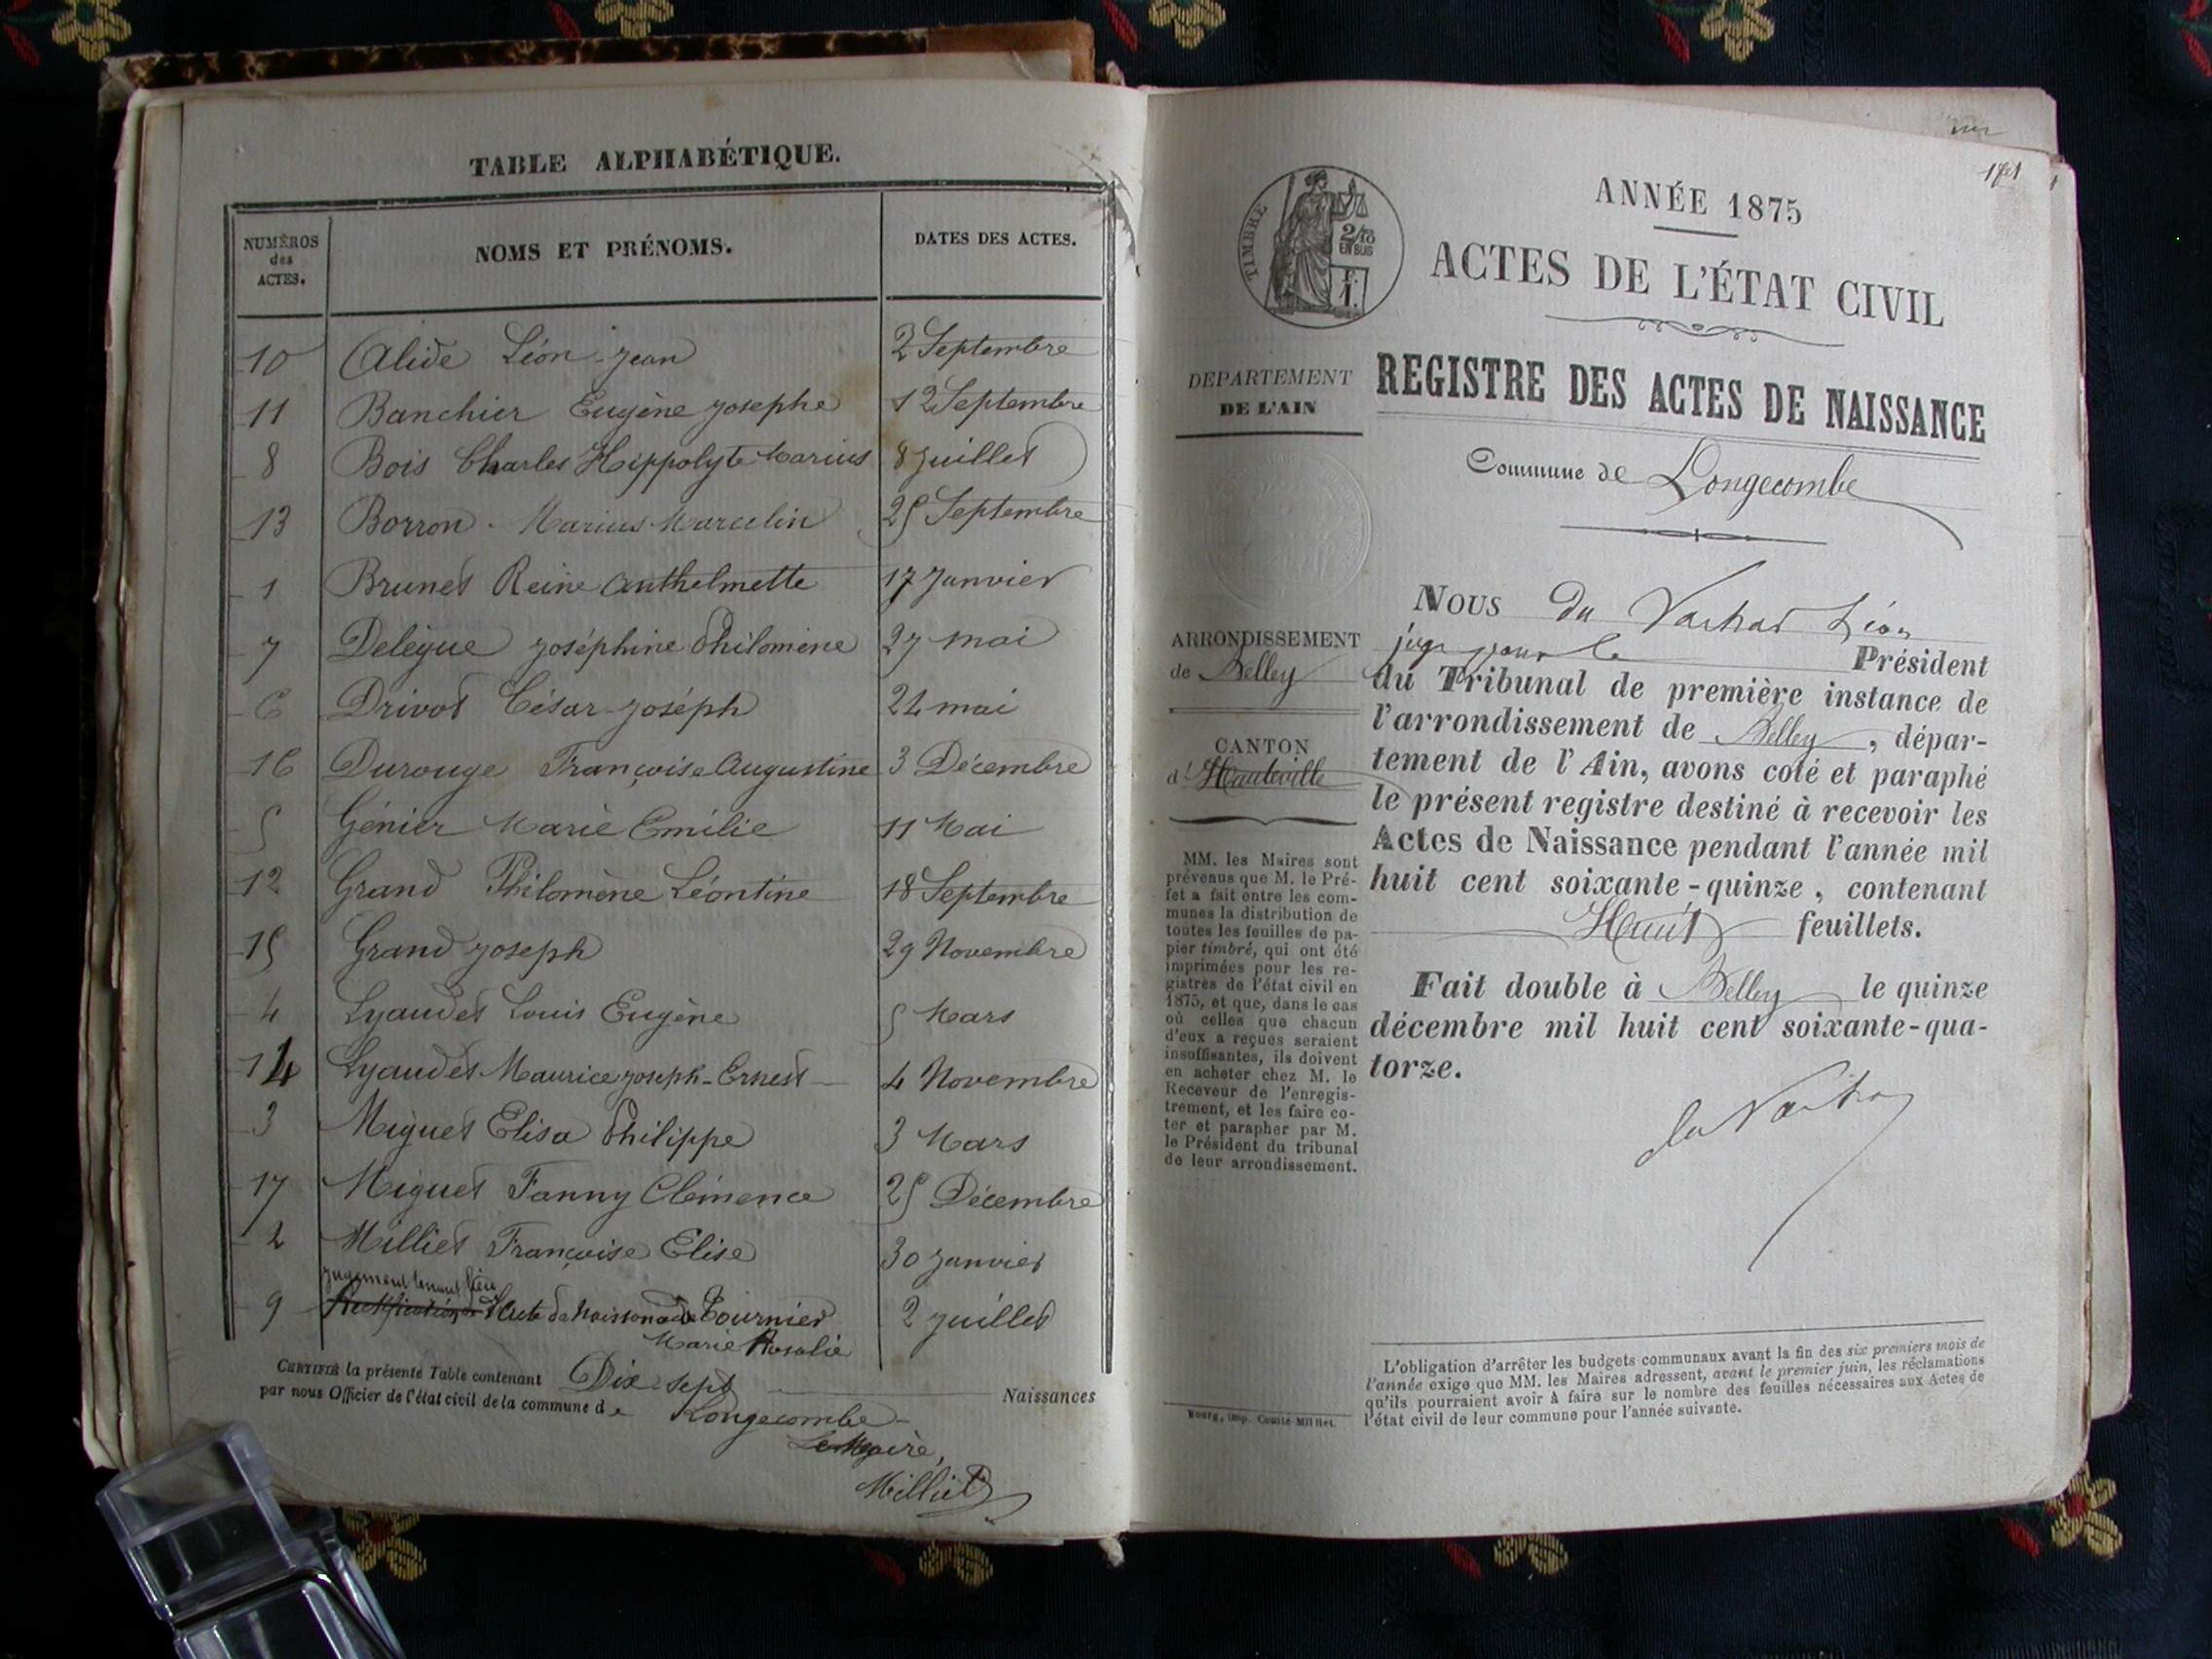 TABLE ALPHABÉTIQUE.
NUMÉROS des ACTES. NOMS ET PRÉNOMS. DATES DES ACTES.
10 Alide Léon-Jean 2 Septembre
11 Banchier Eugène Josephe 12 Septembre
8 Bois Charles Hippolyte Marius 8 Juillet
13 Borron Marius Marcelin 25 Septembre
1 Brunet Reine Anthelmette 17 Janvier
7 Delégue Joséphine Philomène 27 mai
6 Drivot César-Joséph 24 mai
16 Durouge Françoise Augustine 3 Décembre
5 Génier Marie Emilie 11 Mai
12 Grand Philomène Léontine 18 Septembre
15 Grand Joseph 29 Novembre
4 Lyaudet Louis Eugène 5 Mars
14 Lyaudet Maurice Joseph-Ernest 4 Novembre
3 Miguet Elisa Philippe 3 Mars
17 Miguet Fanny Clémence 25 Décembre
2 Milliet Françoise Elise 30 Janvier
jugement tenant lieu
9 Rectification d'acte de Naissance de Tournier 2 Juillet
Marie Rosalie
CERTIFIÉ la présente Table contenant Dix-sept Naissances
par nous Officier de l'état civil de la commune de Longecombe
Le Maire,
Milliet
1
TIMBRE
2/10
EN SUS
F.
1.
ANNÉE 1875
ACTES DE L'ÉTAT CIVIL
DÉPARTEMENT
DE L'AIN
REGISTRE DES ACTES DE NAISSANCE
Commune de Longecombe
ARRONDISSEMENT
de Belley
CANTON
d'Hauteville
MM. les Maires sont
prévenus que M. le Pré-
fet a fait entre les com-
munes la distribution de
toutes les feuilles de pa-
pier timbré, qui ont été
imprimées pour les re-
gistres de l'état civil en
1875, et que, dans le cas
où celles que chacun
d'eux a reçues seraient
insuffisantes, ils doivent
en acheter chez M. le
Receveur de l'enregis-
trement, et les faire co-
ter et parapher par M.
le Président du tribunal
de leur arrondissement.
NOUS Du Vachat Léon
juge pour le Président
du Tribunal de première instance de
l'arrondissement de Belley, dépar-
tement de l'Ain, avons coté et paraphé
le présent registre destiné à recevoir les
Actes de Naissance pendant l'année mil
huit cent soixante-quinze, contenant
Huit feuillets.
Fait double à Belley le quinze
décembre mil huit cent soixante-qua-
torze.
du Vachat
L'obligation d'arrêter les budgets communaux avant la fin des six premiers mois de
l'année exige que MM. les Maires adressent, avant le premier juin, les réclamations
qu'ils pourraient avoir à faire sur le nombre des feuilles nécessaires aux Actes de
l'état civil de leur commune pour l'année suivante.
Bourg, imp. Comte-Milliet.